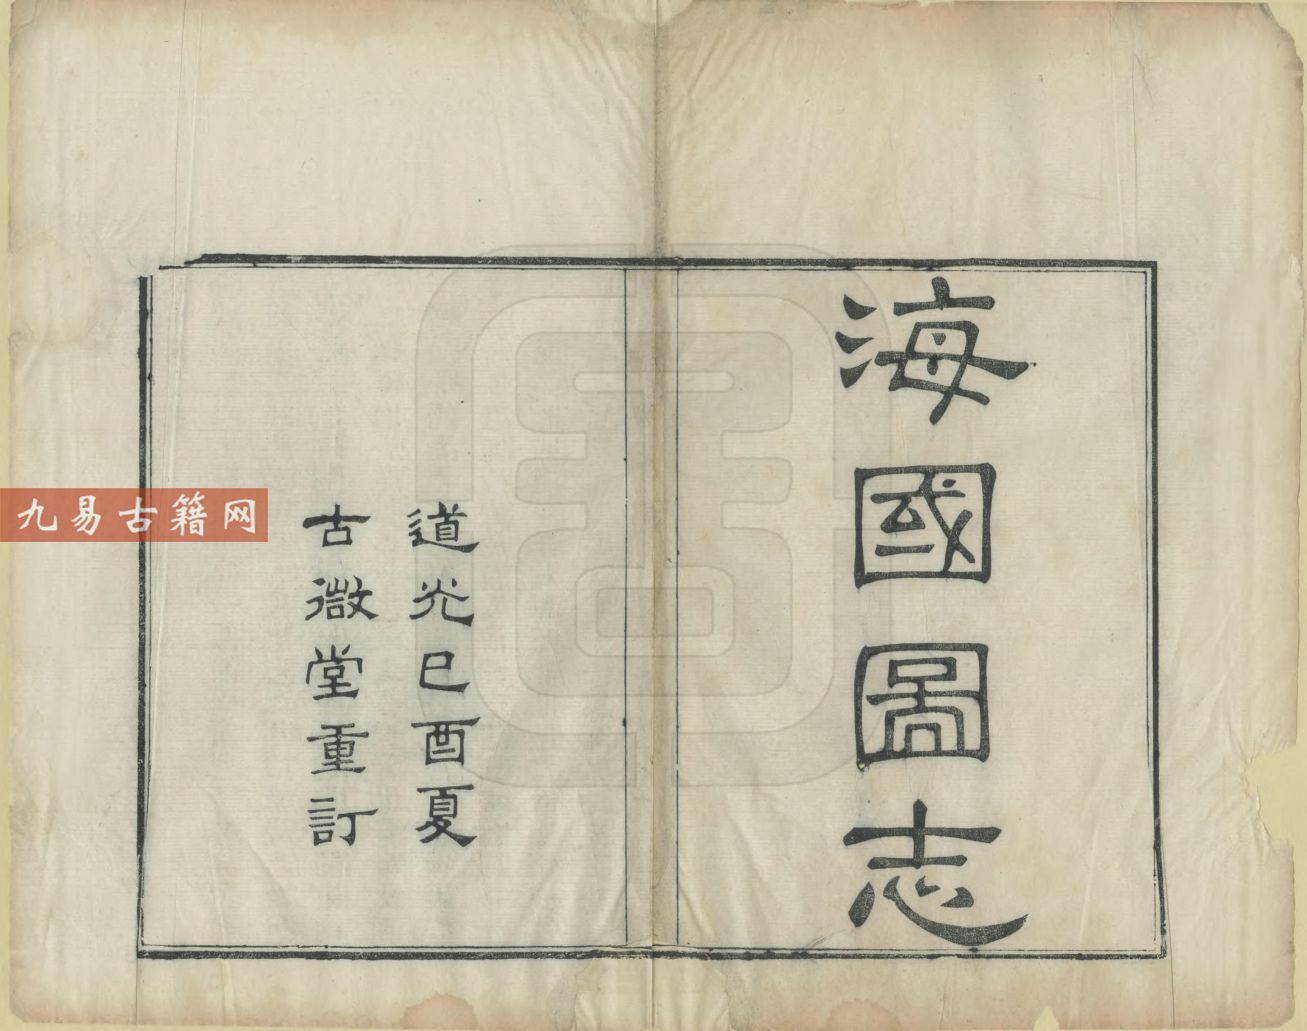 海國圖志
道光己酉夏
古微堂重訂
九易古籍网